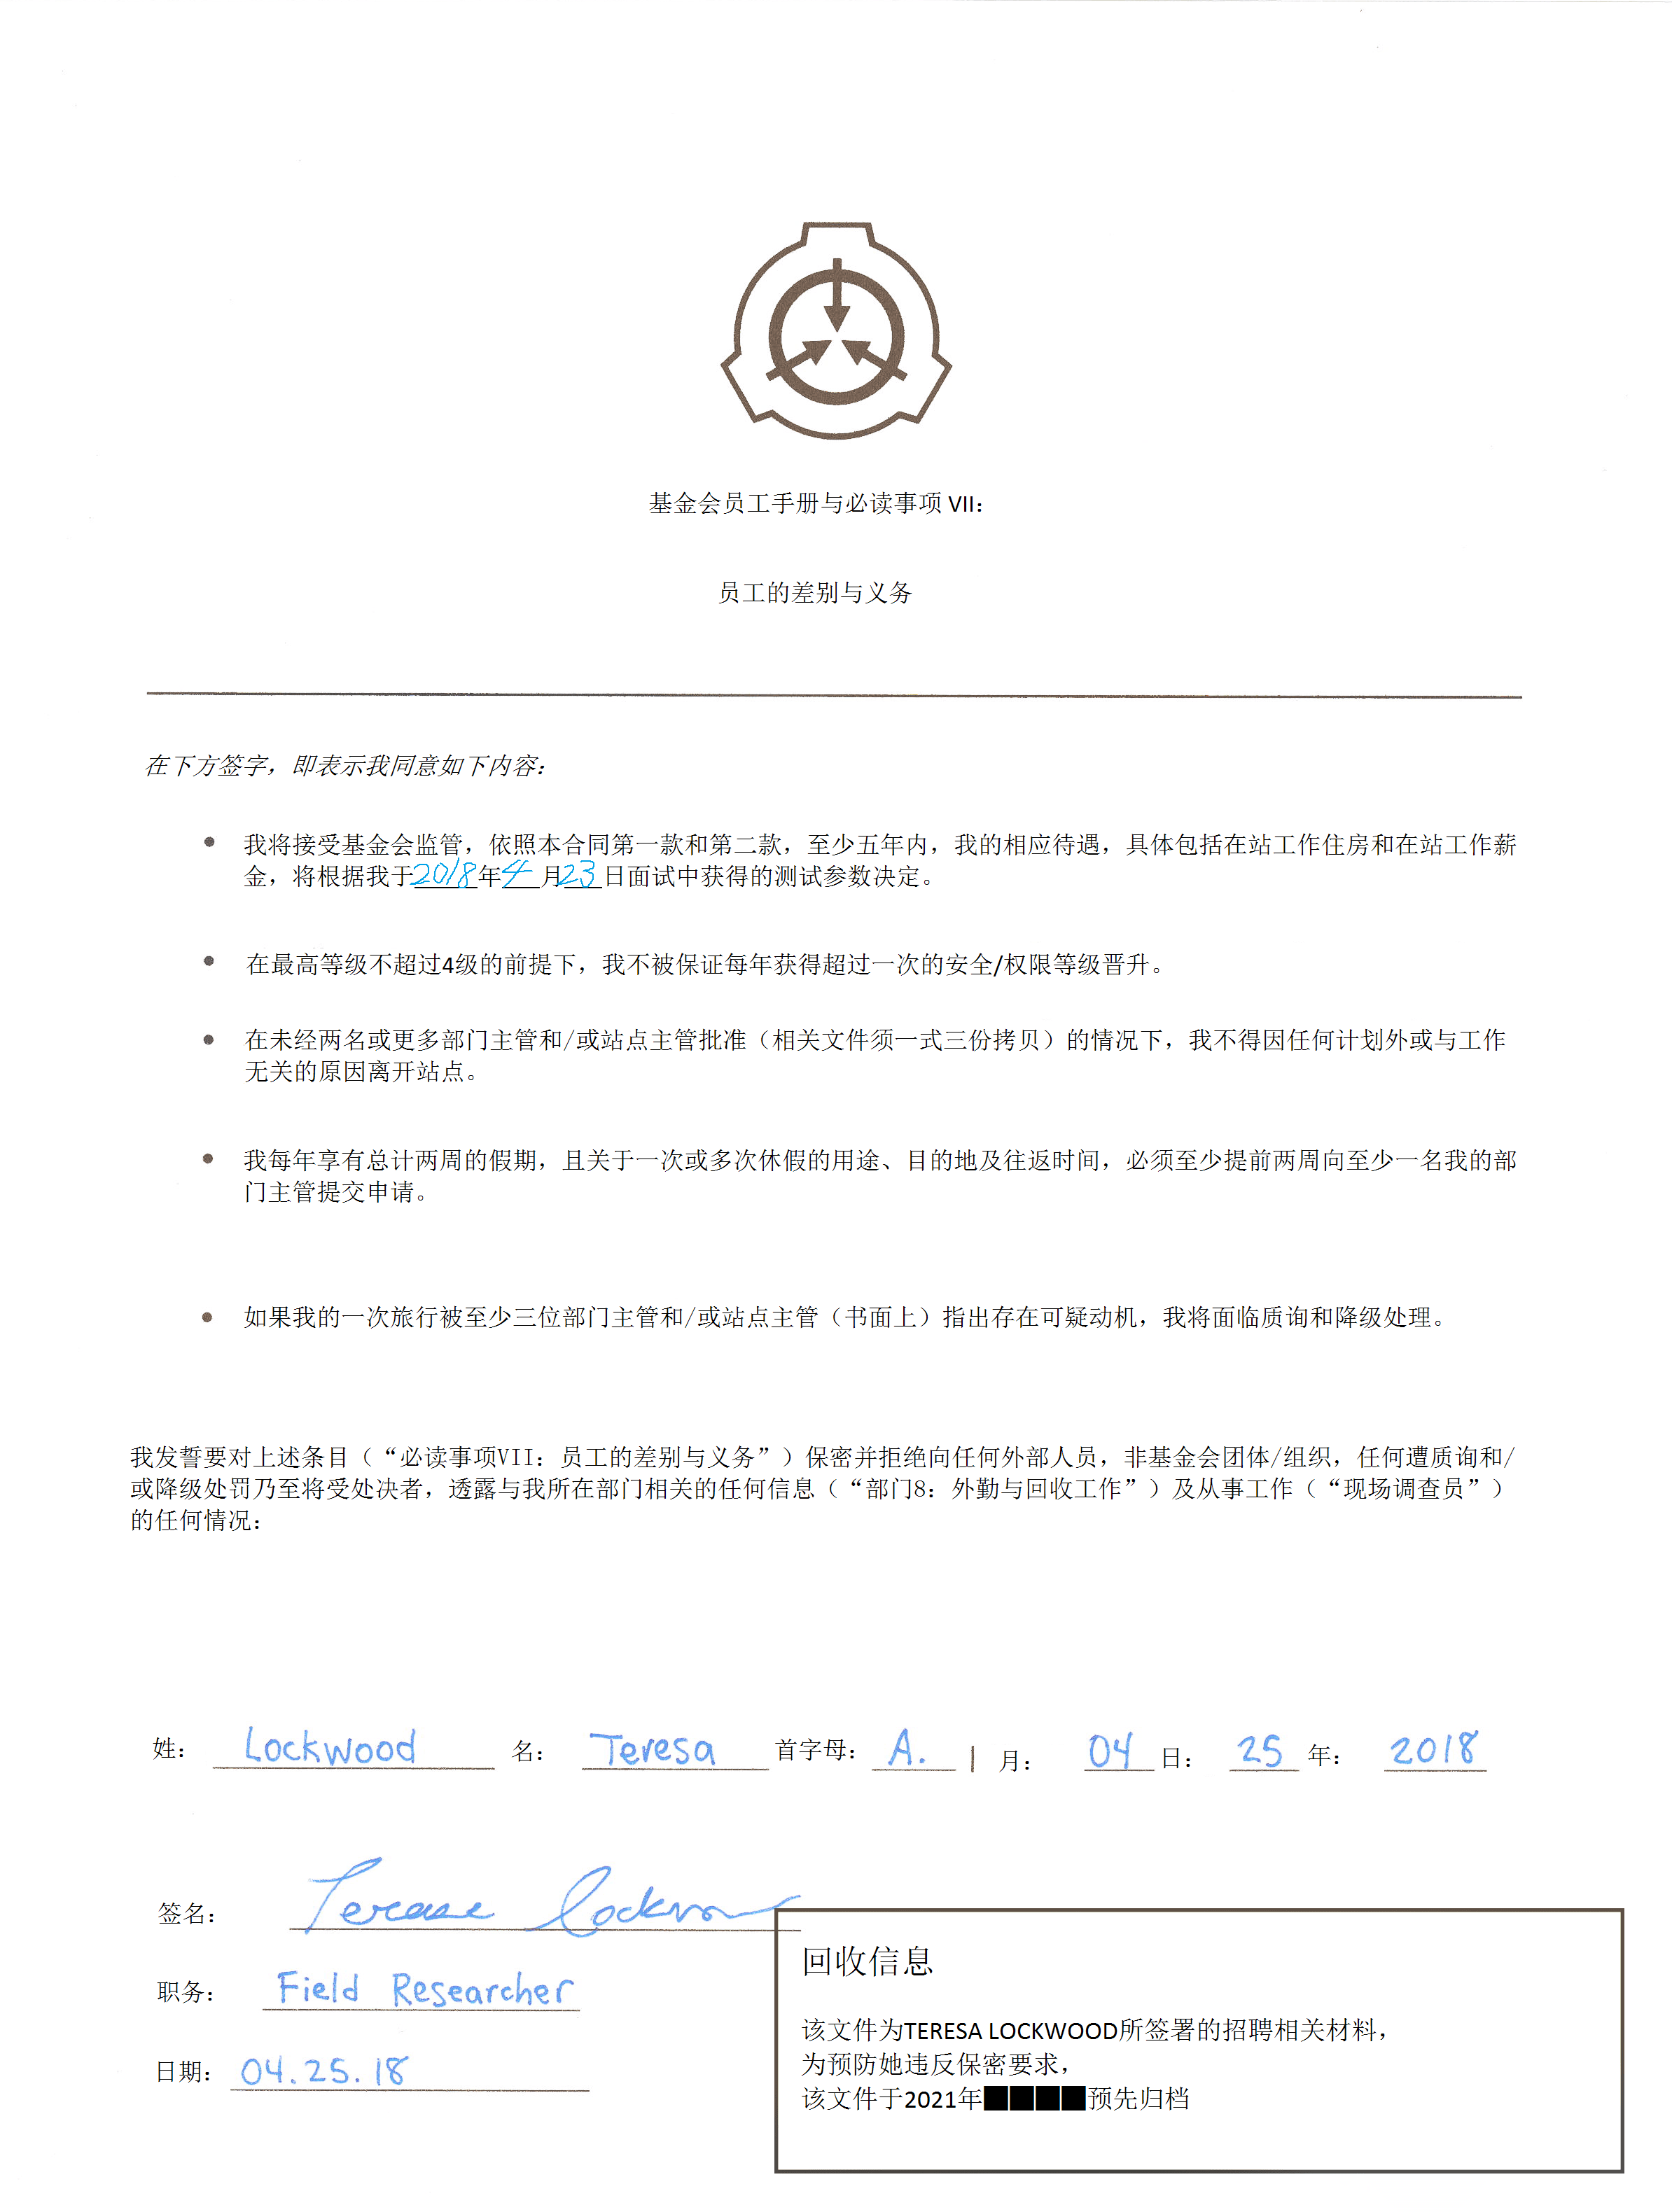 基金会员工手册与必读事项 VII：
员工的差别与义务
在下方签字，即表示我同意如下内容：
• 我将接受基金会监管，依照本合同第一款和第二款，至少五年内，我的相应待遇，具体包括在站工作住房和在站工作薪
金，将根据我于2018年4月23日面试中获得的测试参数决定。
• 在最高等级不超过4级的前提下，我不被保证每年获得超过一次的安全/权限等级晋升。
• 在未经两名或更多部门主管和/或站点主管批准（相关文件须一式三份拷贝）的情况下，我不得因任何计划外或与工作
无关的原因离开站点。
• 我每年享有总计两周的假期，且关于一次或多次休假的用途、目的地及往返时间，必须至少提前两周向至少一名我的部
门主管提交申请。
• 如果我的一次旅行被至少三位部门主管和/或站点主管（书面上）指出存在可疑动机，我将面临质询和降级处理。
我发誓要对上述条目（“必读事项VII：员工的差别与义务”）保密并拒绝向任何外部人员，非基金会团体/组织，任何遭质询和/
或降级处罚乃至将受处决者，透露与我所在部门相关的任何信息（“部门8：外勤与回收工作”）及从事工作（“现场调查员”）
的任何情况：
姓： Lockwood 名： Teresa 首字母： A. | 月： 04 日： 25 年： 2018
签名： Terease Lockwo
职务： Field Researcher
日期： 04.25.18
回收信息
该文件为TERESA LOCKWOOD所签署的招聘相关材料，
为预防她违反保密要求，
该文件于2021年████预先归档